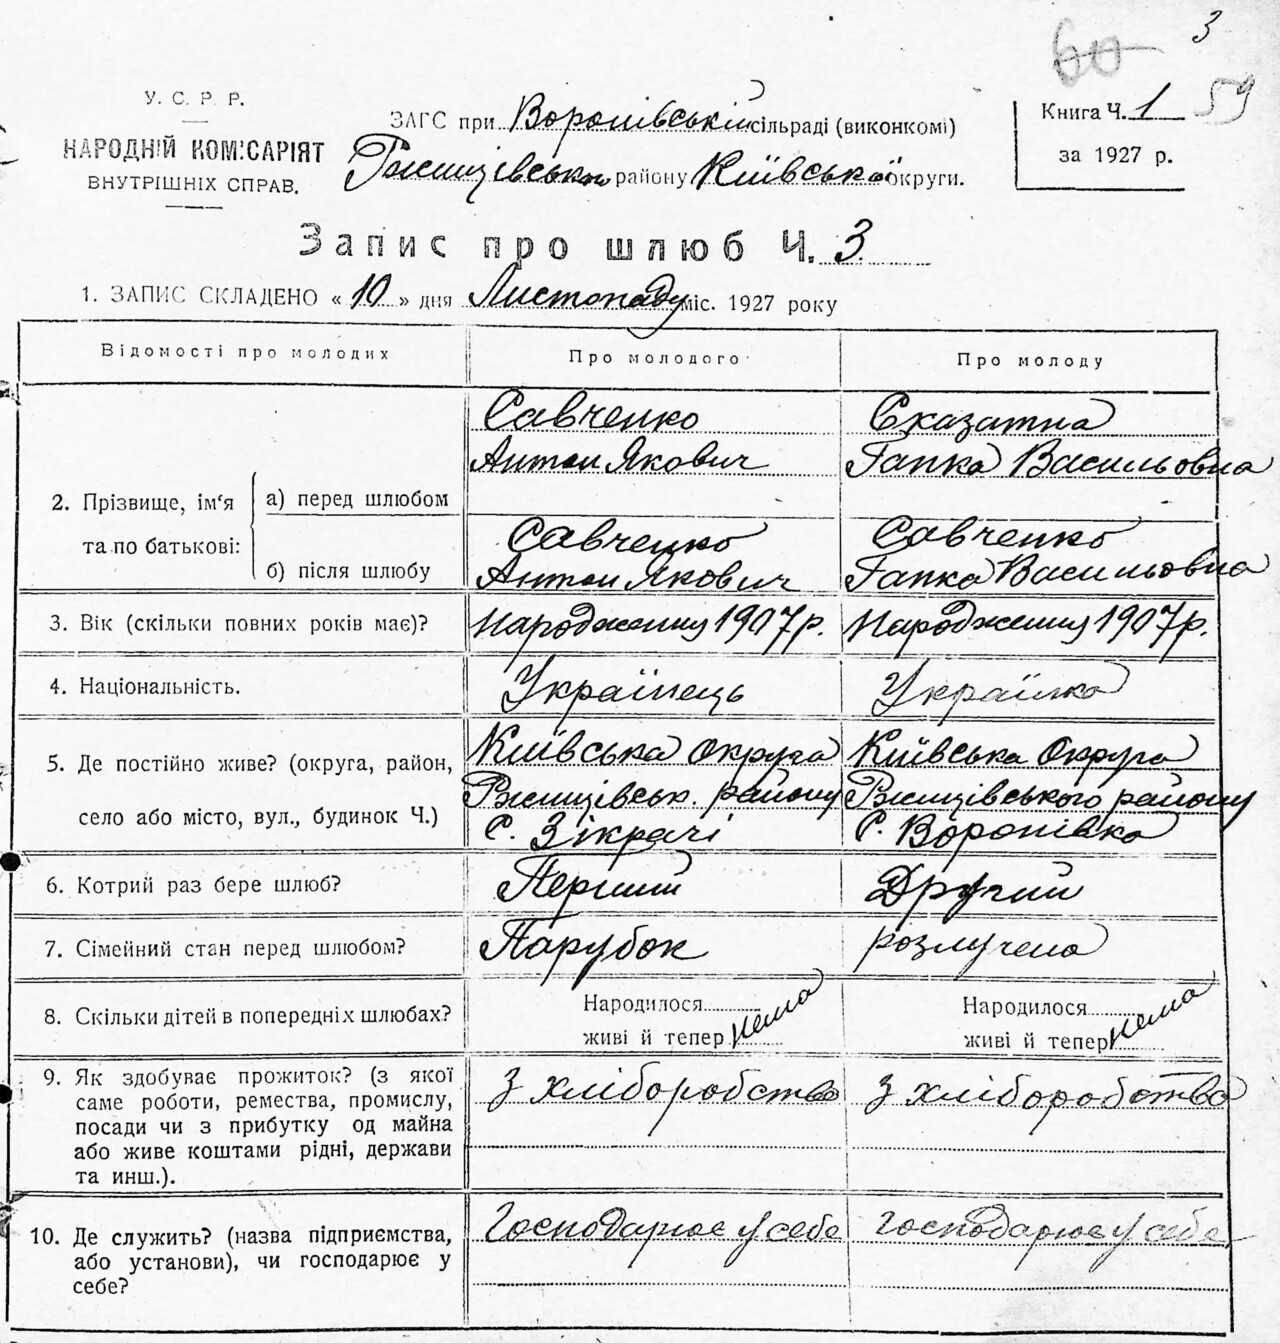 3
60
59
У. С. Р. Р.
НАРОДНІЙ КОМІСАРІЯТ
ВНУТРІШНІХ СПРАВ.
ЗАГС при Воронівській сільраді (виконкомі)
Ржищівськ району Київської округи.
Книга Ч. 1
за 1927 р.
Запис про шлюб Ч. 3.
1. ЗАПИС СКЛАДЕНО « 10 » дня Листопаду міс. 1927 року
Відомості про молодих
Про молодого
Про молоду
2. Прізвище, ім'я
та по батькові:
а) перед шлюбом
Савченко
Антон Якович
Сказатна
Гапка Васильовна
б) після шлюбу
Савченко
Антон Якович
Савченко
Гапка Васильовна
3. Вік (скільки повних років має)?
народжения 1907 р.
народжения 1907 р.
4. Національність.
Українець
Українка
5. Де постійно живе? (округа, район,
село або місто, вул., будинок Ч.)
Київська округа
Ржищівськ. району
с. Зікрачі
Київська Округа
Ржищівського району
с. Воронівка
6. Котрий раз бере шлюб?
Перший
Другий
7. Сімейний стан перед шлюбом?
Парубок
розлучена
8. Скільки дітей в попередніх шлюбах?
Народилося
живі й тепер нема
Народилося
живі й тепер нема
9. Як здобуває прожиток? (з якої
саме роботи, ремества, промислу,
посади чи з прибутку од майна
або живе коштами рідні, держави
та инш.).
З хліборобства
З хліборобства
10. Де служить? (назва підприємства,
або установи), чи господарює у
себе?
Господарює у себе
Господарює у себе